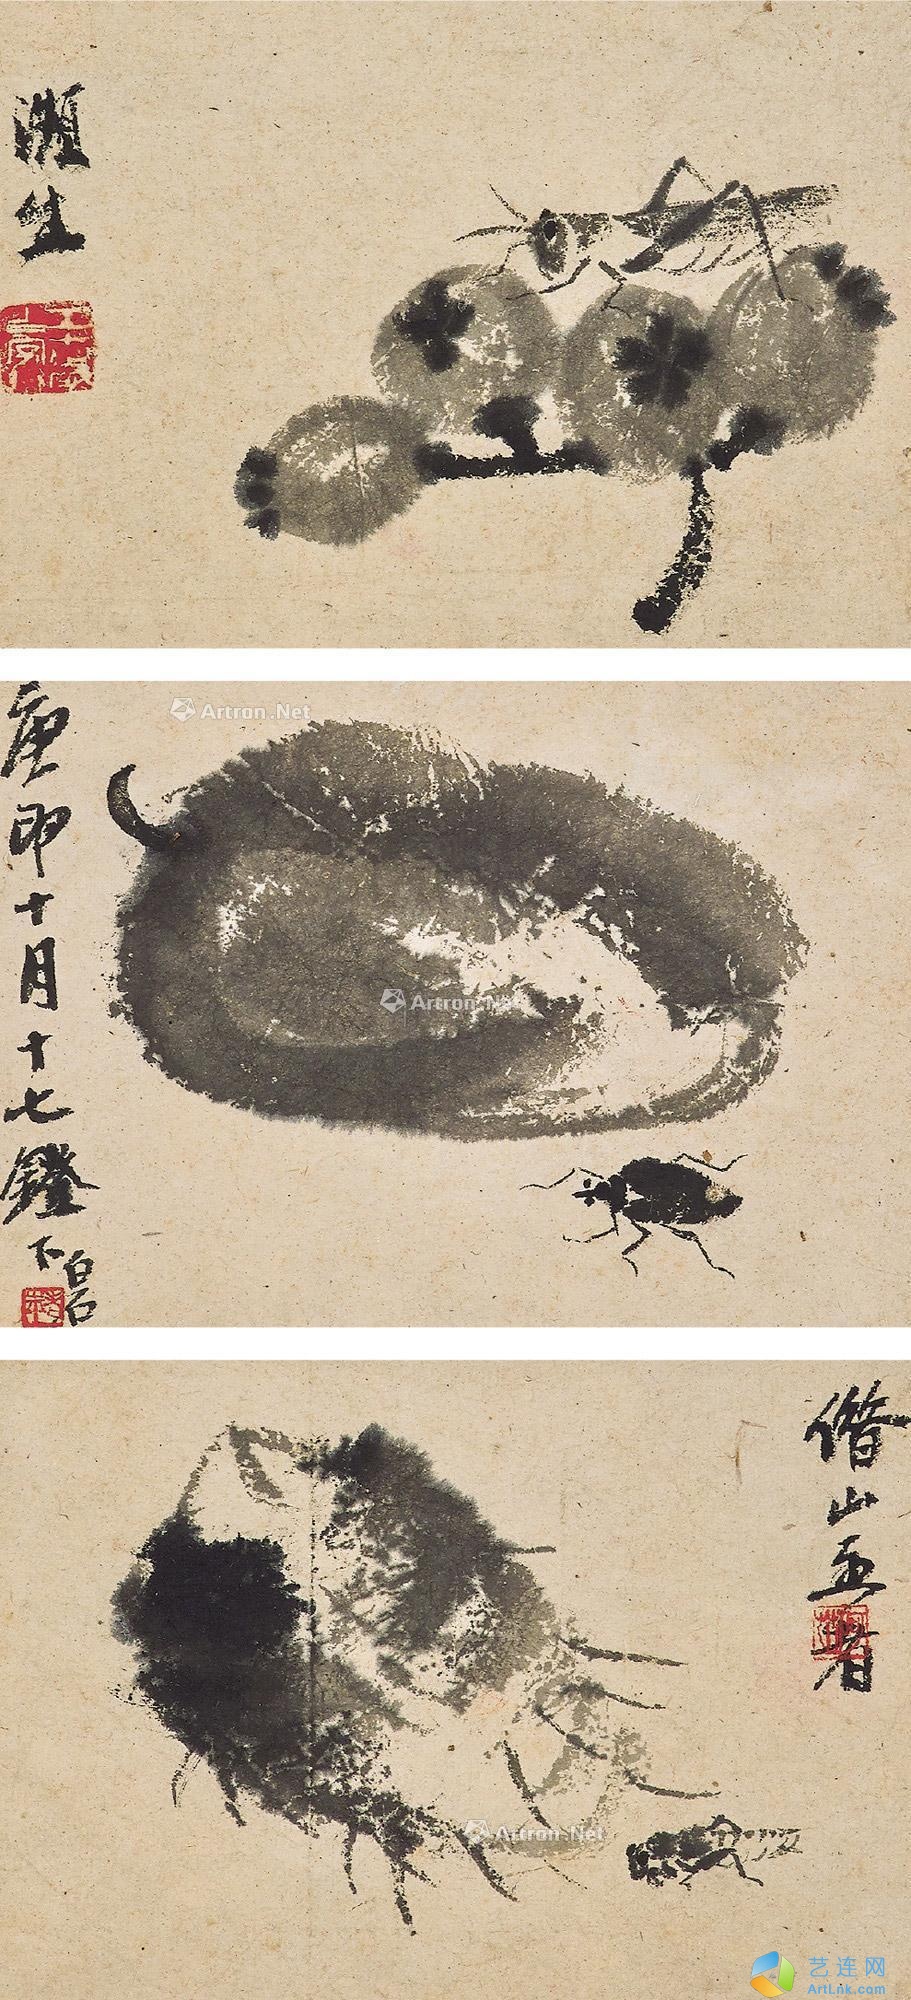 瀕生
Artron.Net
庚申十月十七鐙下
白石
Artron.Net
借山吾看
Artron.Net
艺连网
ArtLnk.com